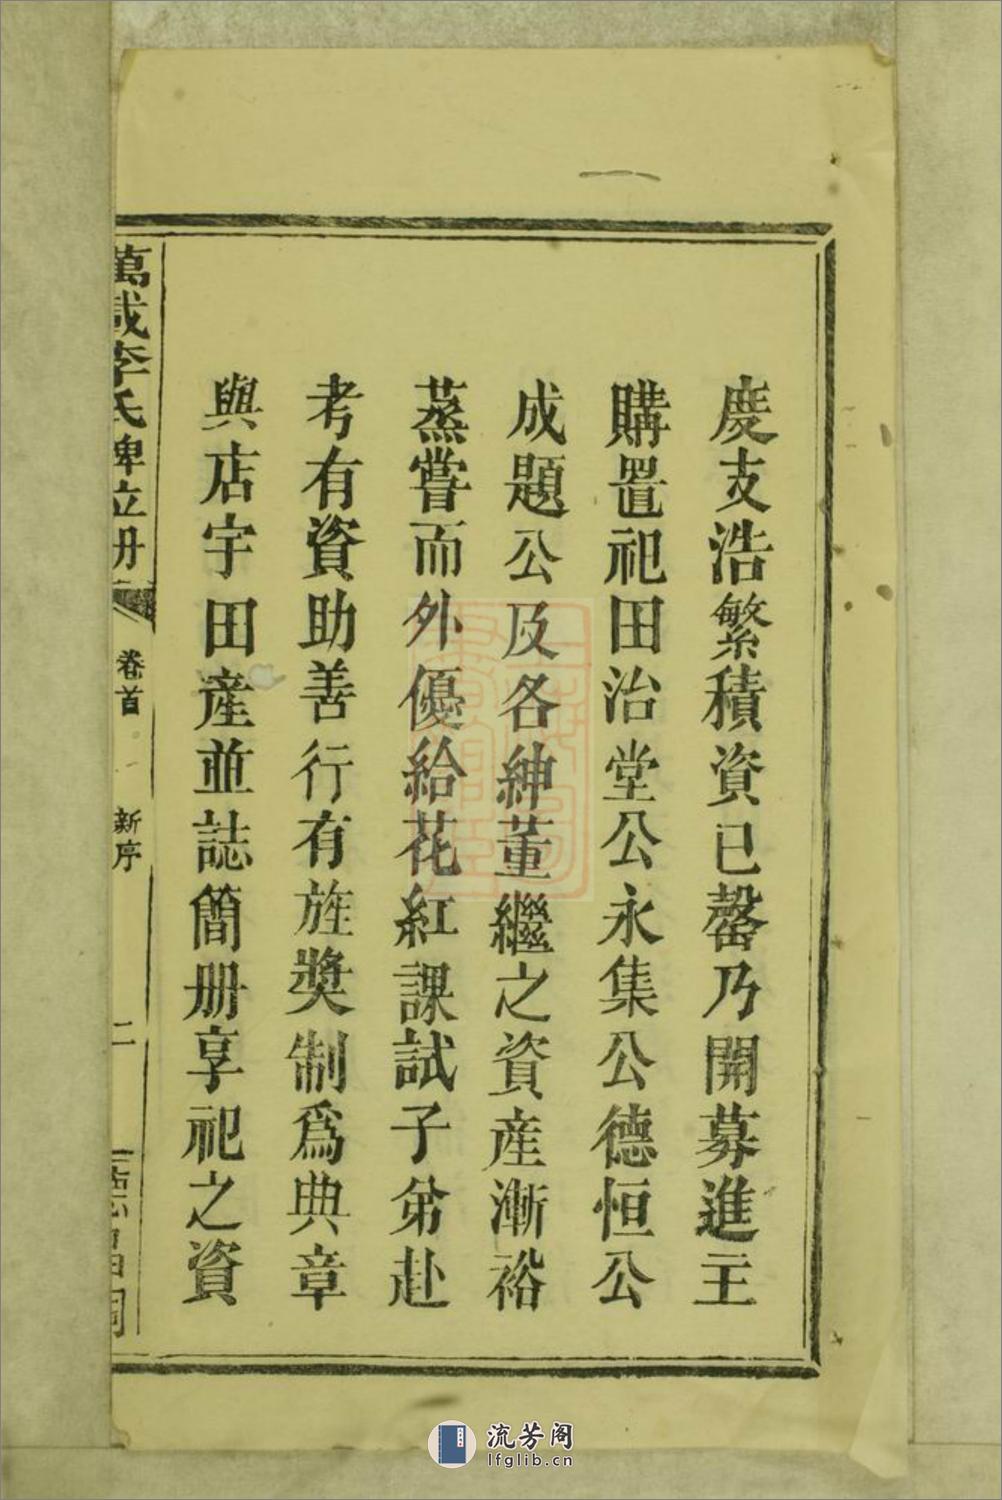 度支浩繁積資已罄乃開募進主
購置祀田治堂公永集公德恒公
成題公及各紳董繼之資產漸裕
蒸嘗而外優給花紅課試子弟赴
考有資助善行有旌獎制爲典章
與店宇田產並誌簡册享祀之資
萬載李氏碑位册
卷首
新序
二
流芳阁
lfglib.cn